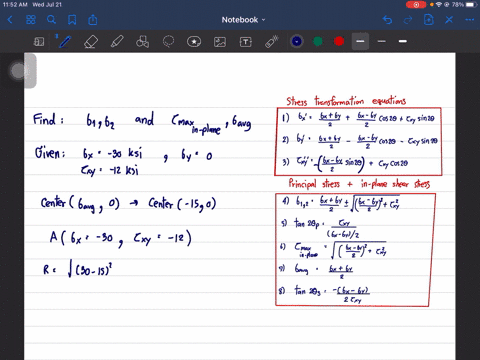 11:52 AM Wed Jul 21
78%
Notebook
Find: σ1, σ2 and τmax in-plane, σavg
Given: σx = -30 ksi , σy = 0
τxy = -12 ksi
Center (σavg, 0) → Center (-15, 0)
A (σx = -30, τxy = -12)
R = √(30-15)²
Stress transformation equations
1) σx' = (σx+σy)/2 + (σx-σy)/2 cos2θ + τxy sin2θ
2) σy' = (σx+σy)/2 - (σx-σy)/2 cos2θ - τxy sin2θ
3) τx'y' = -((σx-σy)/2 sin2θ) + τxy cos2θ
Principal stress + in-plane shear stress
4) σ1,2 = (σx+σy)/2 ± √((σx-σy)/2)² + τxy²
5) tan 2θp = τxy/((σx-σy)/2)
6) τmax in-plane = √((σx-σy)/2)² + τxy²
7) σavg = (σx+σy)/2
8) tan 2θs = -(σx-σy)/(2τxy)